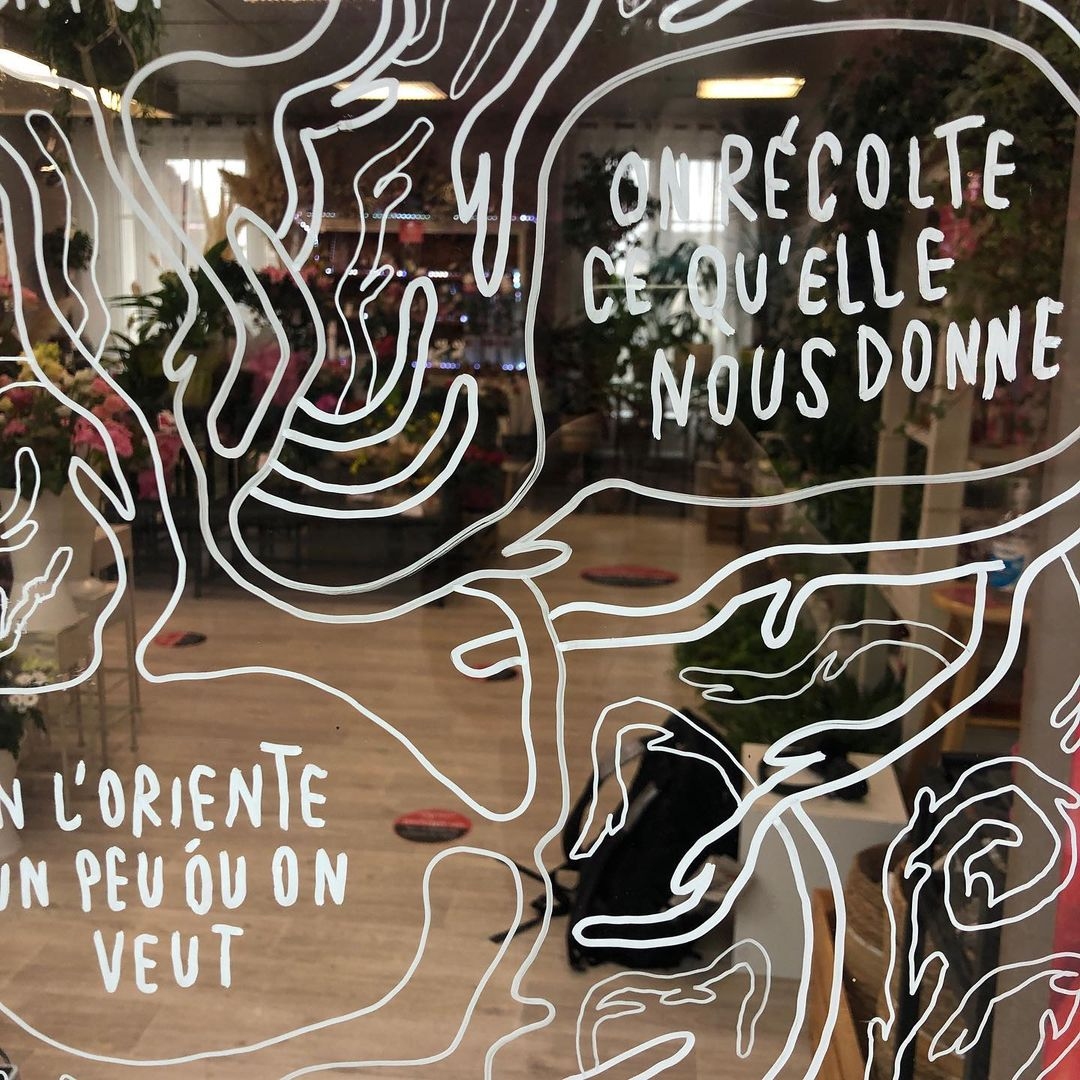 ON RÉCOLTE
CE QU'ELLE
NOUS DONNE
N L'ORIENTE
UN PEU ÓU ON
VEUT